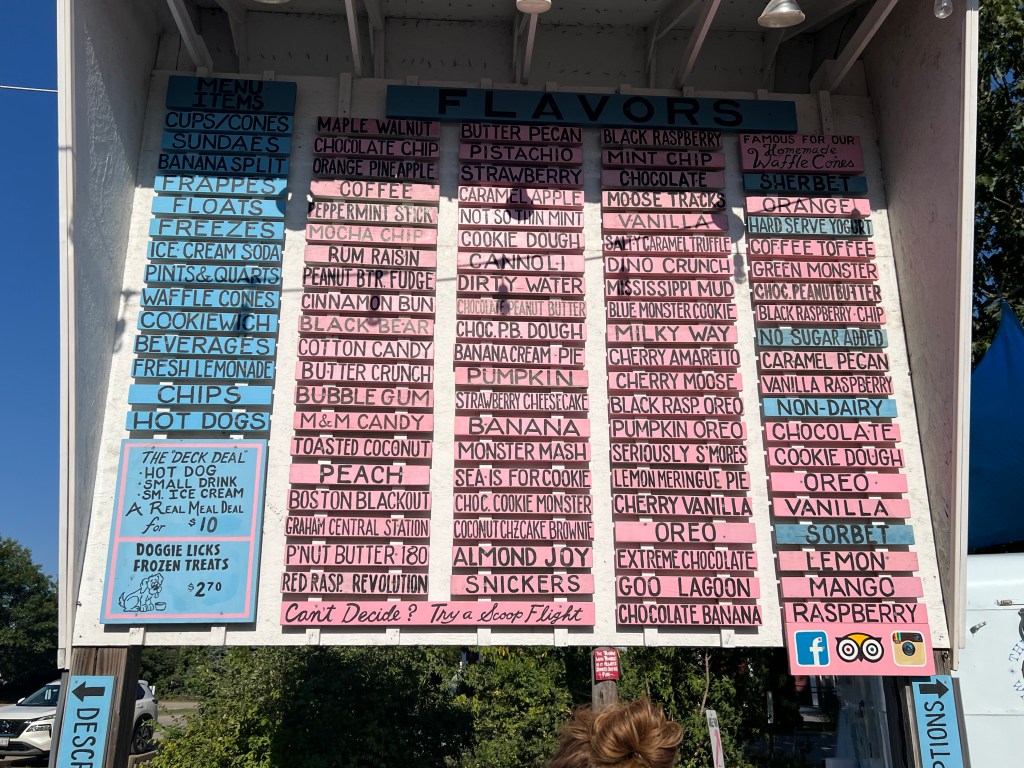 MENU
ITEMS
CUPS/CONES
SUNDAES
BANANA SPLIT
FRAPPES
FLOATS
FREEZES
ICE CREAM SODA
PINTS & QUARTS
WAFFLE CONES
COOKIEWICH
BEVERAGES
FRESH LEMONADE
CHIPS
HOT DOGS
THE "DECK DEAL"
• HOT DOG
• SMALL DRINK
• SM. ICE CREAM
A REAL MEAL DEAL
for $10
DOGGIE LICKS
FROZEN TREATS
$2.70
FLAVORS
MAPLE WALNUT
CHOCOLATE CHIP
ORANGE PINEAPPLE
COFFEE
PEPPERMINT STICK
MOCHA CHIP
RUM RAISIN
PEANUT BTR. FUDGE
CINNAMON BUN
BLACK BEAR
COTTON CANDY
BUTTER CRUNCH
BUBBLE GUM
M&M CANDY
TOASTED COCONUT
PEACH
BOSTON BLACKOUT
GRAHAM CENTRAL STATION
P'NUT BUTTER 180
RED RASP. REVOLUTION
Can't Decide? Try a Scoop Flight
BUTTER PECAN
PISTACHIO
STRAWBERRY
CARAMEL APPLE
NOT SO THIN MINT
COOKIE DOUGH
CANNOLI
DIRTY WATER
CHOCOLATE PEANUT BUTTER
CHOC. P.B. DOUGH
BANANA CREAM PIE
PUMPKIN
STRAWBERRY CHEESECAKE
BANANA
MONSTER MASH
SEA IS FOR COOKIE
CHOC. COOKIE MONSTER
COCONUT CHZCAKE BROWNIE
ALMOND JOY
SNICKERS
BLACK RASPBERRY
MINT CHIP
CHOCOLATE
MOOSE TRACKS
VANILLA
SALTY CARAMEL TRUFFLE
DINO CRUNCH
MISSISSIPPI MUD
BLUE MONSTER COOKIE
MILKY WAY
CHERRY AMARETTO
CHERRY MOOSE
BLACK RASP. OREO
PUMPKIN OREO
SERIOUSLY S'MORES
LEMON MERINGUE PIE
CHERRY VANILLA
OREO
EXTREME CHOCOLATE
GOO LAGOON
CHOCOLATE BANANA
FAMOUS FOR OUR
Homemade
Waffle Cones
SHERBET
ORANGE
HARD SERVE YOGURT
COFFEE TOFFEE
GREEN MONSTER
CHOC. PEANUTBUTTER
BLACK RASPBERRY CHIP
NO SUGAR ADDED
CARAMEL PECAN
VANILLA RASPBERRY
NON-DAIRY
CHOCOLATE
COOKIE DOUGH
OREO
VANILLA
SORBET
LEMON
MANGO
RASPBERRY
f
DESCR
PTIONS